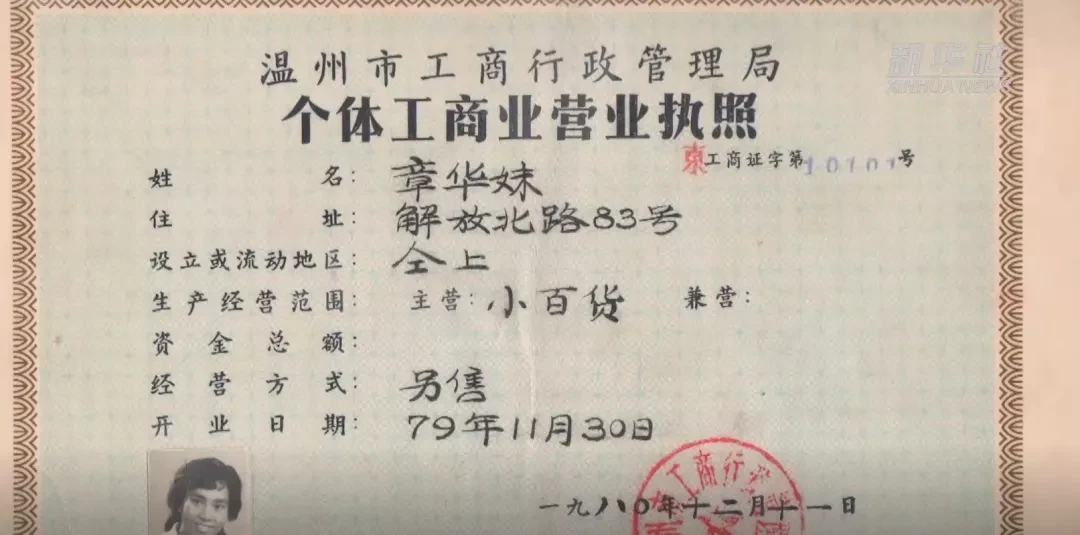 温州市工商行政管理局
新华社
XINHUA NEWS
个体工商业营业执照
东工商证字第10101号
姓名：章华妹
住址：解放北路83号
设立或流动地区：仝上
生产经营范围：主营：小百货 兼营：
资金总额：
经营方式：另售
开业日期：79年11月30日
工商行政
一九八〇年十二月十一日